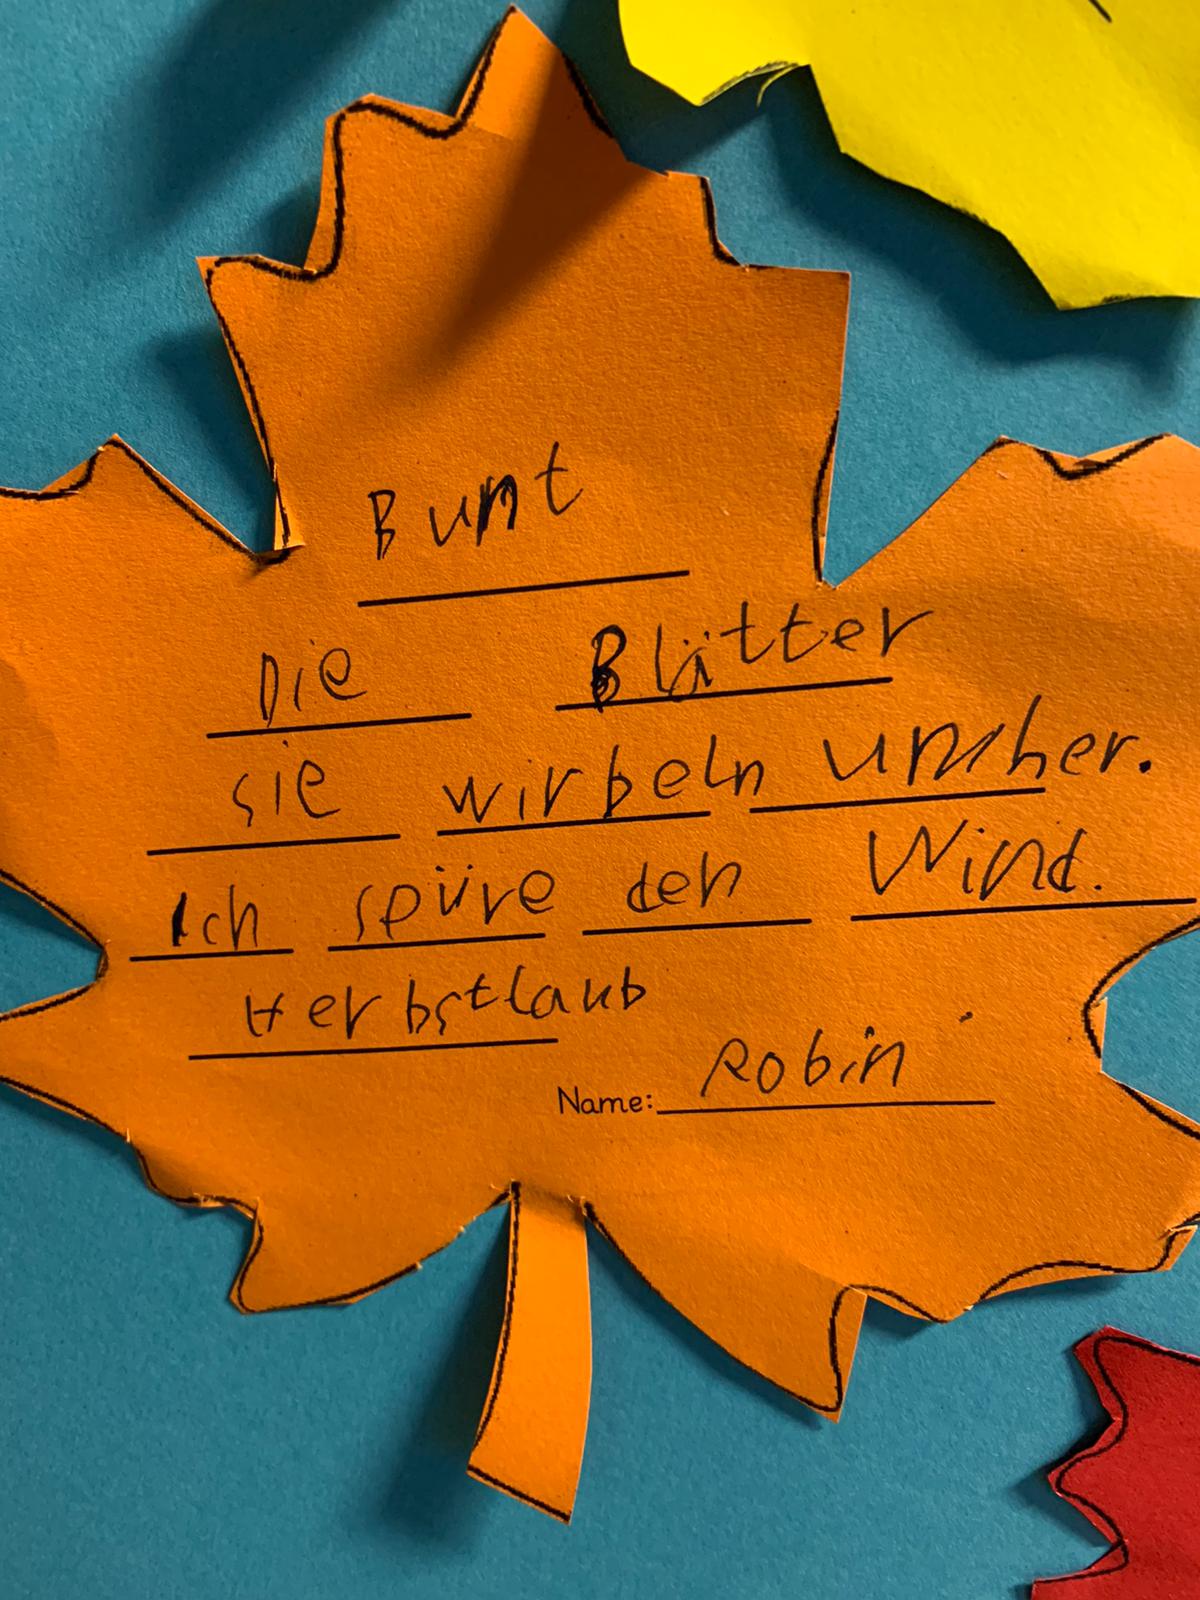 Bunt
Die Blätter
sie wirbeln umher.
Ich spüre den Wind.
Herbstlaub
Name: Robin